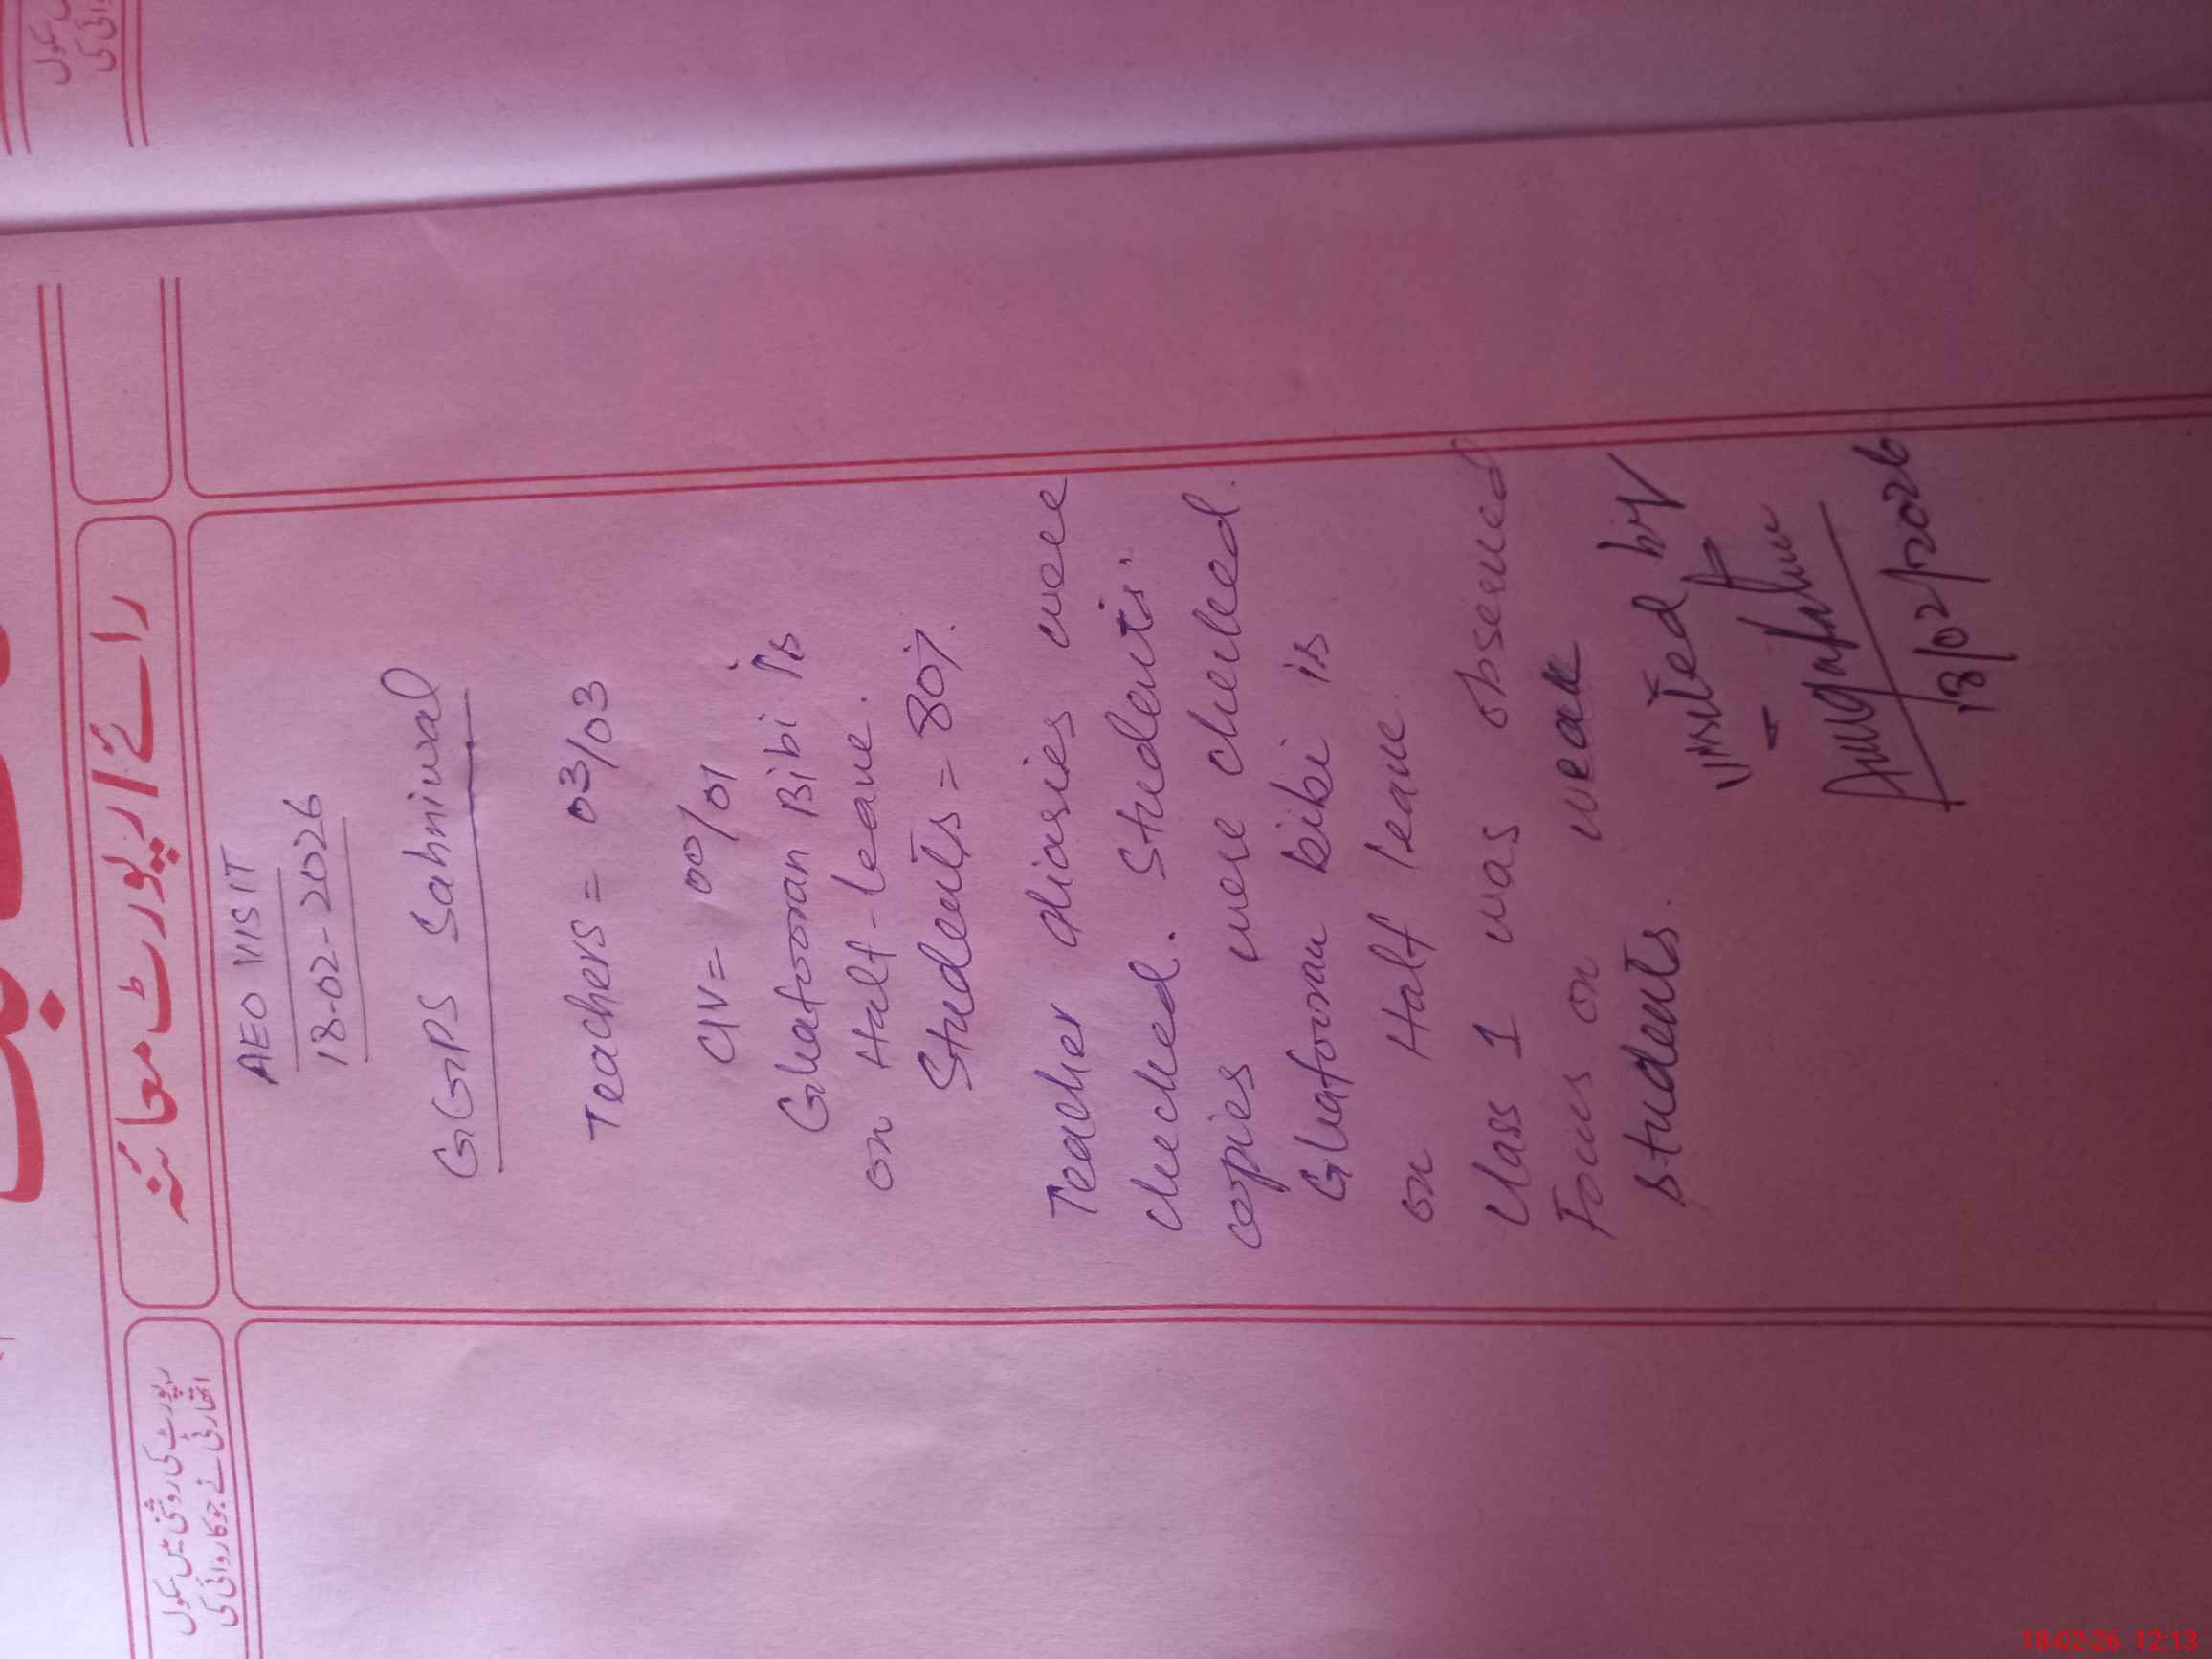 رائے / رپورٹ معائنہ
رپورٹ کی روشنی میں سکول
اتھارٹی نے جو کاروائی کی
AEO VISIT
18-02-2026
GGPS Sahniwal
Teachers = 03/03
CIV = 00/01
Ghafooran Bibi is
on Half-leave.
Students = 80%.
Teacher diaries were
checked. Students.
copies were checked.
Ghafooran bibi is
on Half leave.
Class 1 was observed
Focus on weak
students.
visited by
18/02/2026
18-02-26 12:13